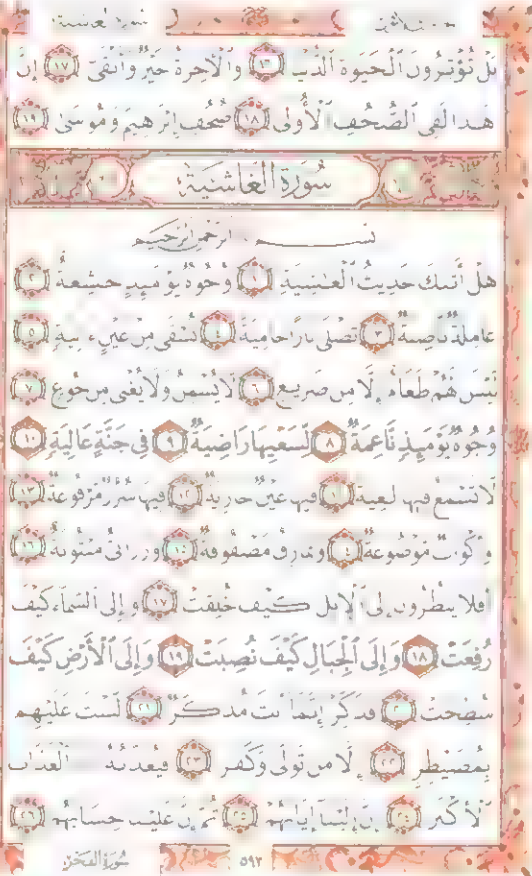 سورة الغاشية
بل تؤثرون الحيوة الدنيا ١٦ والآخرة خير وأبقى ١٧ إن
هذا لفي الصحف الأولى ١٨ صحف إبرهيم وموسى ١٩
سورة الغاشية
بسم الرحمن الرحيم
هل أتىك حديث الغشية ١ وجوه يومئذ خشعة ٢
عاملة ناصبة ٣ تصلى نارا حامية ٤ تسقى من عين ءانية ٥
ليس لهم طعام إلا من ضريع ٦ لا يسمن ولا يغنى من جوع ٧
وجوه يومئذ ناعمة ٨ لسعيها راضية ٩ في جنة عالية ١٠
لا تسمع فيها لغية ١١ فيها عين جارية ١٢ فيها سرر مرفوعة ١٣
وأكواب موضوعة ١٤ ونمارق مصفوفة ١٥ وزرابى مبثوثة ١٦
أفلا ينظرون إلى الإبل كيف خلقت ١٧ وإلى السماء كيف
رفعت ١٨ وإلى الجبال كيف نصبت ١٩ وإلى الأرض كيف
سطحت ٢٠ فذكر إنما أنت مذكر ٢١ لست عليهم
بمصيطر ٢٢ إلا من تولى وكفر ٢٣ فيعذبه العذاب
الأكبر ٢٤ إن إلينا إيابهم ٢٥ ثم إن علينا حسابهم ٢٦
٥٩٢
سورة الفجر